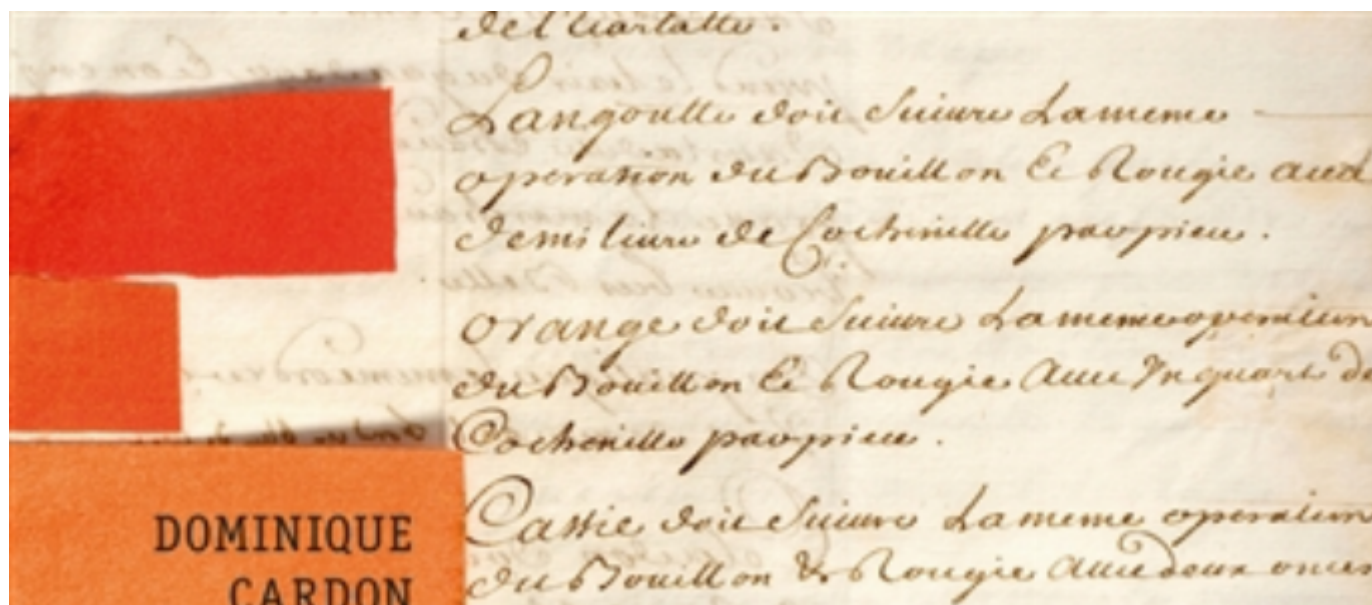 de l'Ecarlatte.
Langoutte doit Suiure Lameme
operation du Bouillon & Rougie auec
demi liure de Cochenille par piece.
Orange doit Suiure Lameme operation
du Bouillon & Rougie Auec Vn quart de
Cochenille par piece.
Cassie doit Suiure Lameme operation
du Bouillon & Rougie Auec deux onces
DOMINIQUE
CARDON